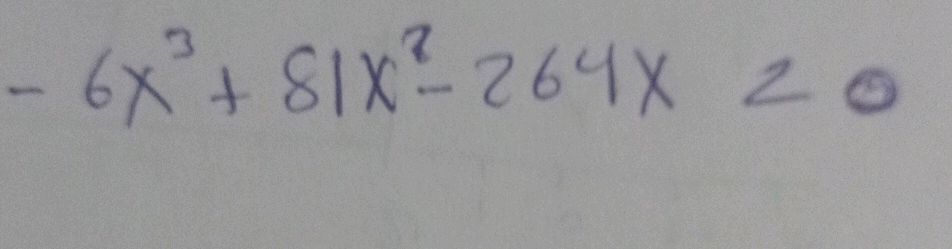 - 6x³ + 81x² - 264x = 0